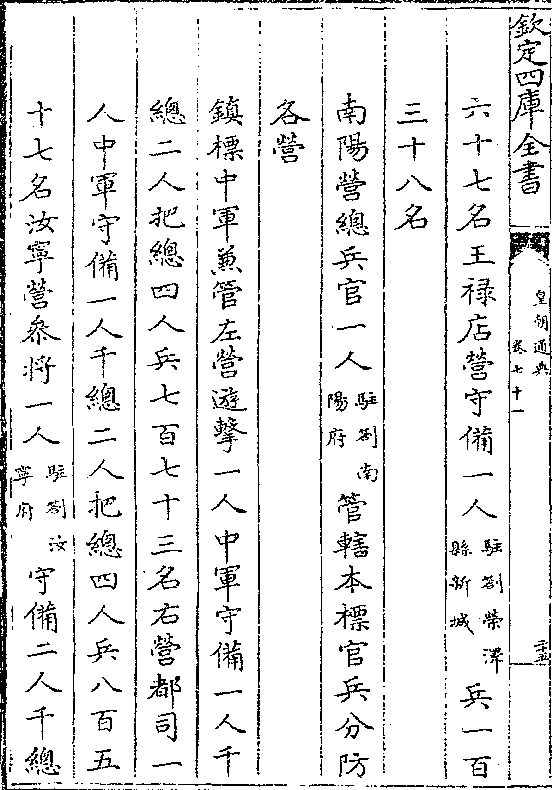 欽定四庫全書
皇朝通典
卷七十一
二十五
六十七名王祿店營守備一人駐劄滎澤縣新城兵一百
三十八名
南陽營總兵官一人駐劄南陽府管轄本標官兵分防
各營
鎮標中軍兼管左營遊擊一人中軍守備一人千
總二人把總四人兵七百七十三名右營都司一
人中軍守備一人千總二人把總四人兵八百五
十七名汝寧營叅將一人駐劄汝寧府守備二人千總